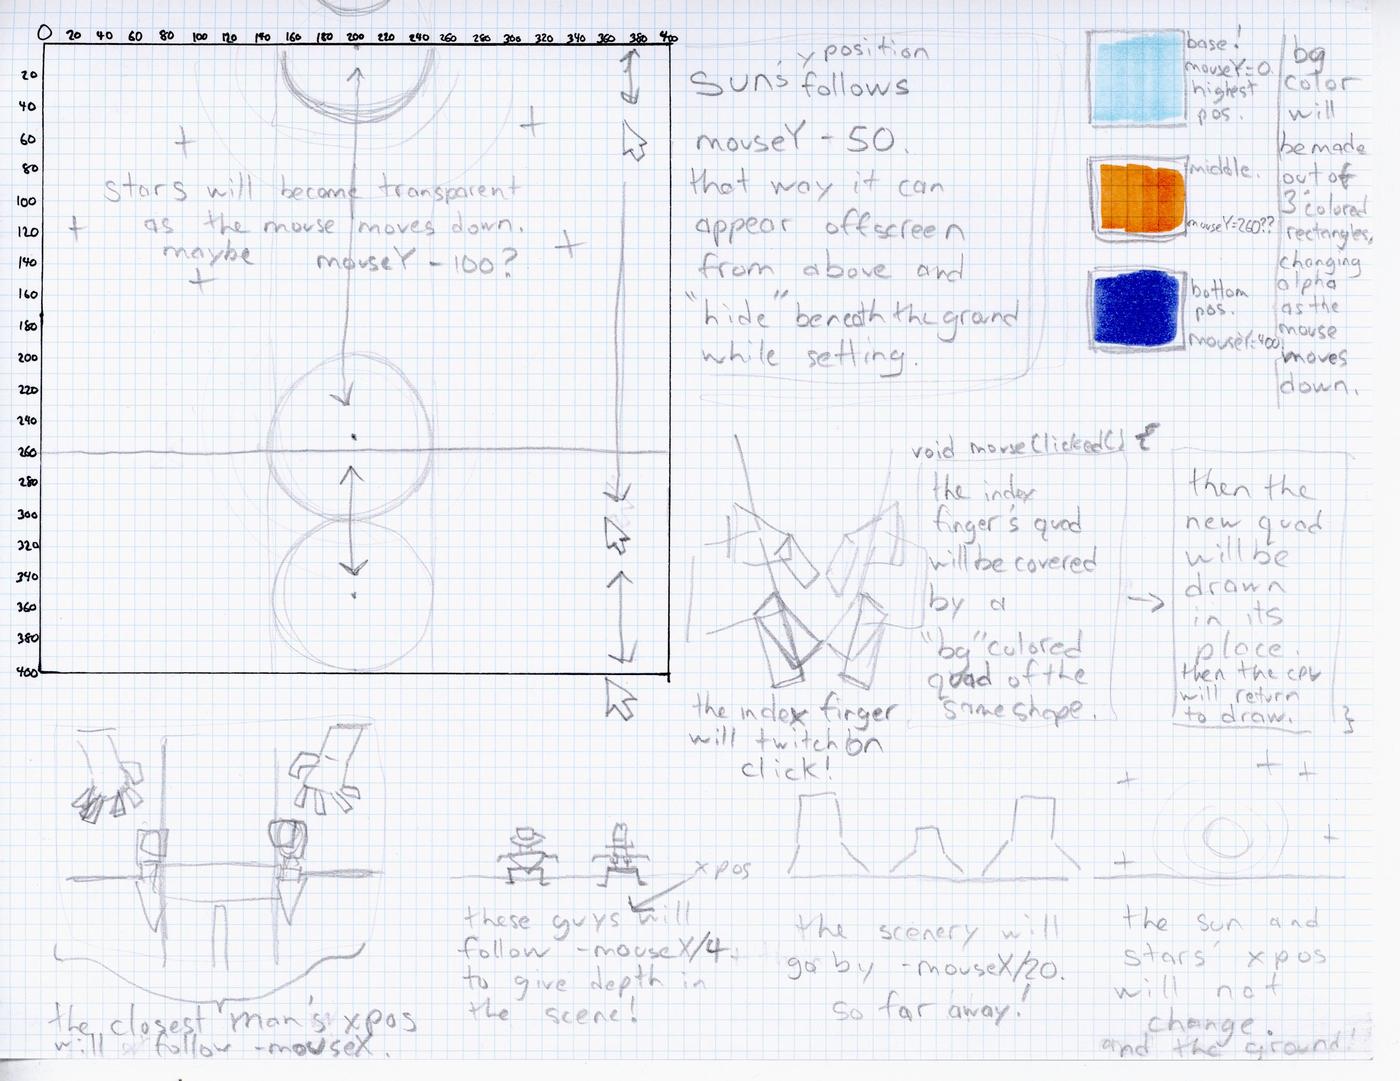 0 20 40 60 80 100 120 140 160 180 200 220 240 260 280 300 320 340 360 380 400
20
40
60
80
100
120
140
160
180
200
220
240
260
280
300
320
340
360
380
400
stars will become transparent
as the mouse moves down.
maybe mouseY - 100?
y position
Sun's follows
mouseY - 50.
that way it can
appear offscreen
from above and
"hide" beneath the ground
while setting.
base!
mouseY=0.
highest
pos.
middle.
mouseY=260??
bottom
pos.
mouseY=400
bg
color
will
be made
out of
3 colored
rectangles,
changing
alpha
as the
mouse
moves
down.
void mouseClicked() {
the index
finger's quad
will be covered
by a
"bg" colored
quad of the
same shape.
then the
new quad
will be
drawn
in its
place.
then the cpu
will return
to draw.
}
the index finger
will twitch on
click!
the closest man's xpos
will follow -mouseX.
xpos
these guys will
follow -mouseX/4.
to give depth in
the scene!
the scenery will
go by -mouseX/20.
so far away!
the sun and
stars' xpos
will not
change.
and the ground!